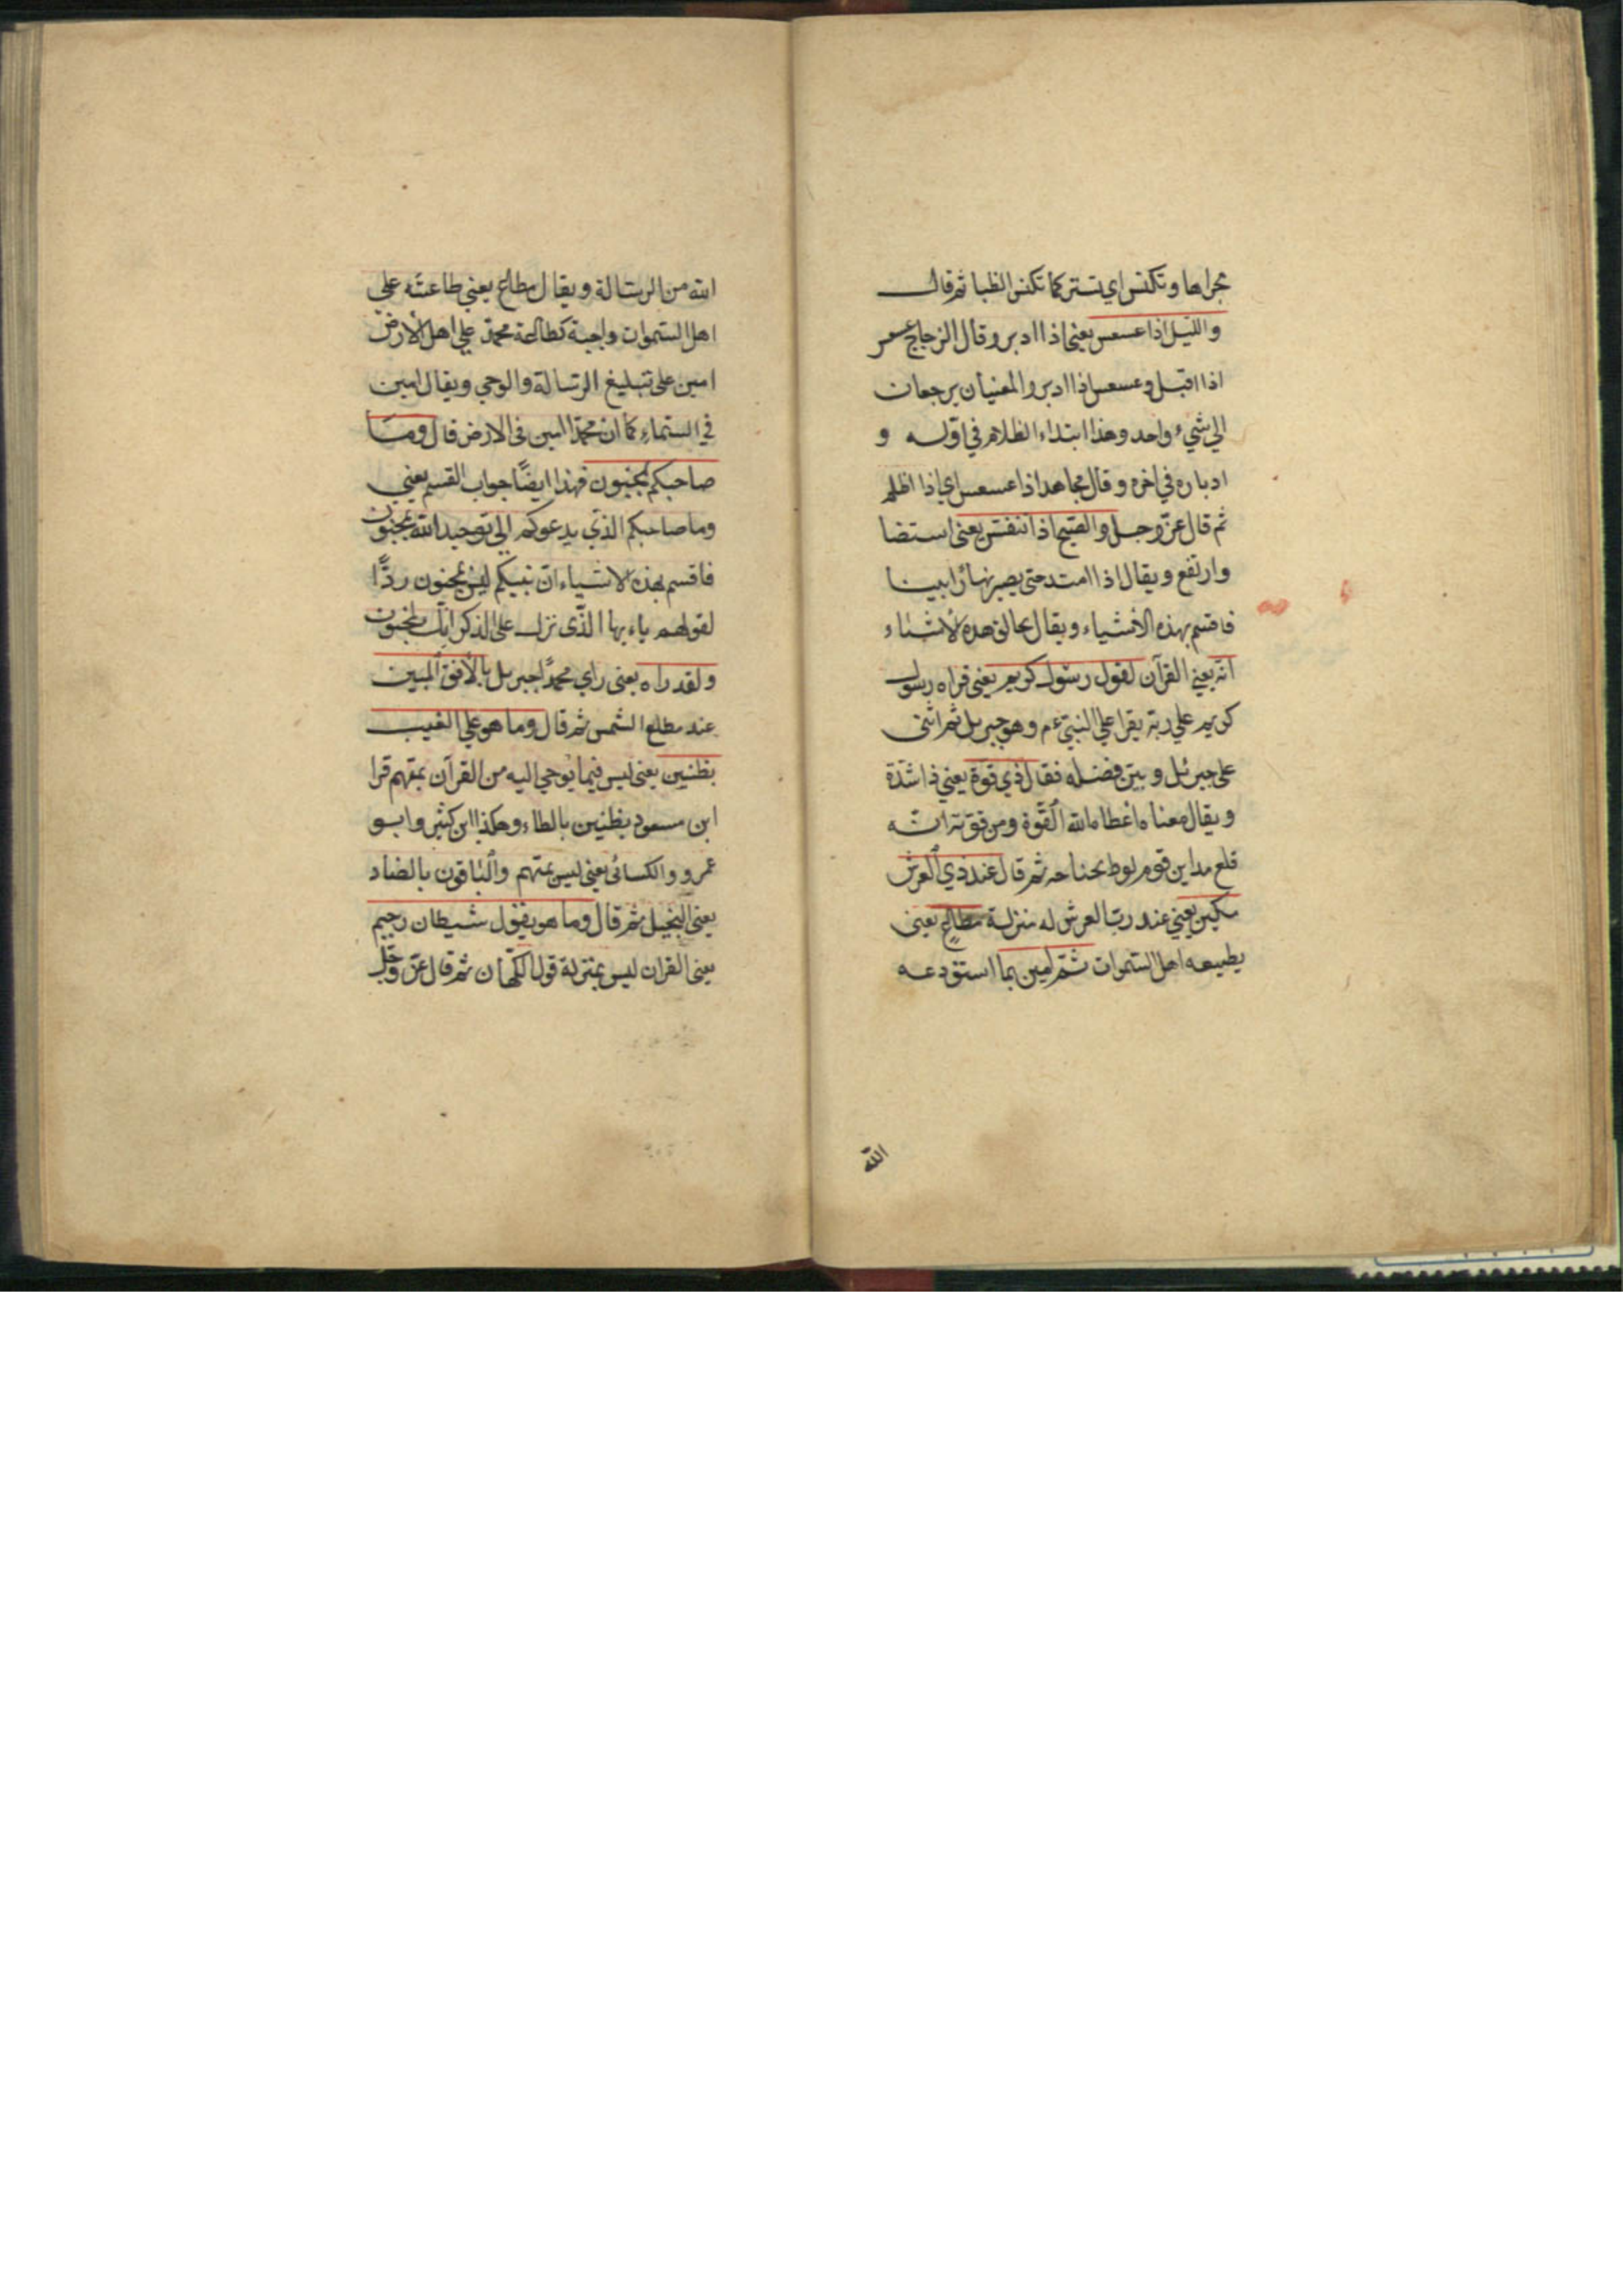 مجراها وتكنس اي تستتر كما تكنس الظبا ثم قال
والليل اذا عسعس يعني اذا ادبر وقال الزجاج عسعس
اذا اقبل وعسعس اذا ادبر والمعنيان يرجعان
الي شيء واحد وهذا ابتداء الظلام في اوله و
ادباره في اخره وقال مجاهد اذا عسعس اي اذا اظلم
ثم قال عزّ وجل والصبح اذا تنفس يعني استضا
وارتفع ويقال اذا امتد حتى يصير نهارًا بينا
فاقسم بهذه الأشياء ويقال بخالق هذه الأشياء
انه يعني القرآن لقول رسول كريم يعني قراه رسول
كريم علي ربّه يقرا علي النبيّ عم وهو جبريل ثم اثنى
على جبرئل وبيّن فضله فقال ذي قوة يعني ذا شدّة
ويقال معناه اعطاه الله القوّة ومن قوّته انّه
قلع مداين قوم لوط بجناحه ثم قال عند ذي العرش
مكين يعني عند ربّ العرش له منزلة مطاعٍ يعني
يطيعه اهل السّموات ثمّ امين بما استودعه
الله
الله من الرسالة ويقال مطاع يعني طاعته علي
اهل السّموات واجبة كطاعة محمّد علي اهل الأرض
امين على تبليغ الرسالة والوحي ويقال امين
في السّماء كما ان محمدًا امين في الارض قال وما
صاحبكم بمجنون فهذا ايضًا جواب القسم يعني
وما صاحبكم الذّي يدعوكم الي توحيد الله بمجنون
فاقسم بهذه الاشياء انّ نبيكم ليس بمجنون ردًّا
لقولهم ياءيها الّذى نزل على الذكر انّك لمجنون
ولقد راه يعنى راي محمدًا جبريل بالأفق المبين
عند مطلع الشمس ثم قال وما هو علي الغيب
بظنين يعني ليس فيما يوحي اليه من القرآن بمتهم قرا
ابن مسعود بظنين بالظاء وهكذا ابن كثير وابو
عمرو والكسائى يعني ليس بمتهم والباقون بالضاد
يعني البخيل ثم قال وما هو بقول شيطان رجيم
يعنى القران ليس بمنزلة قول الكهّان ثم قال عزّ وجلّ